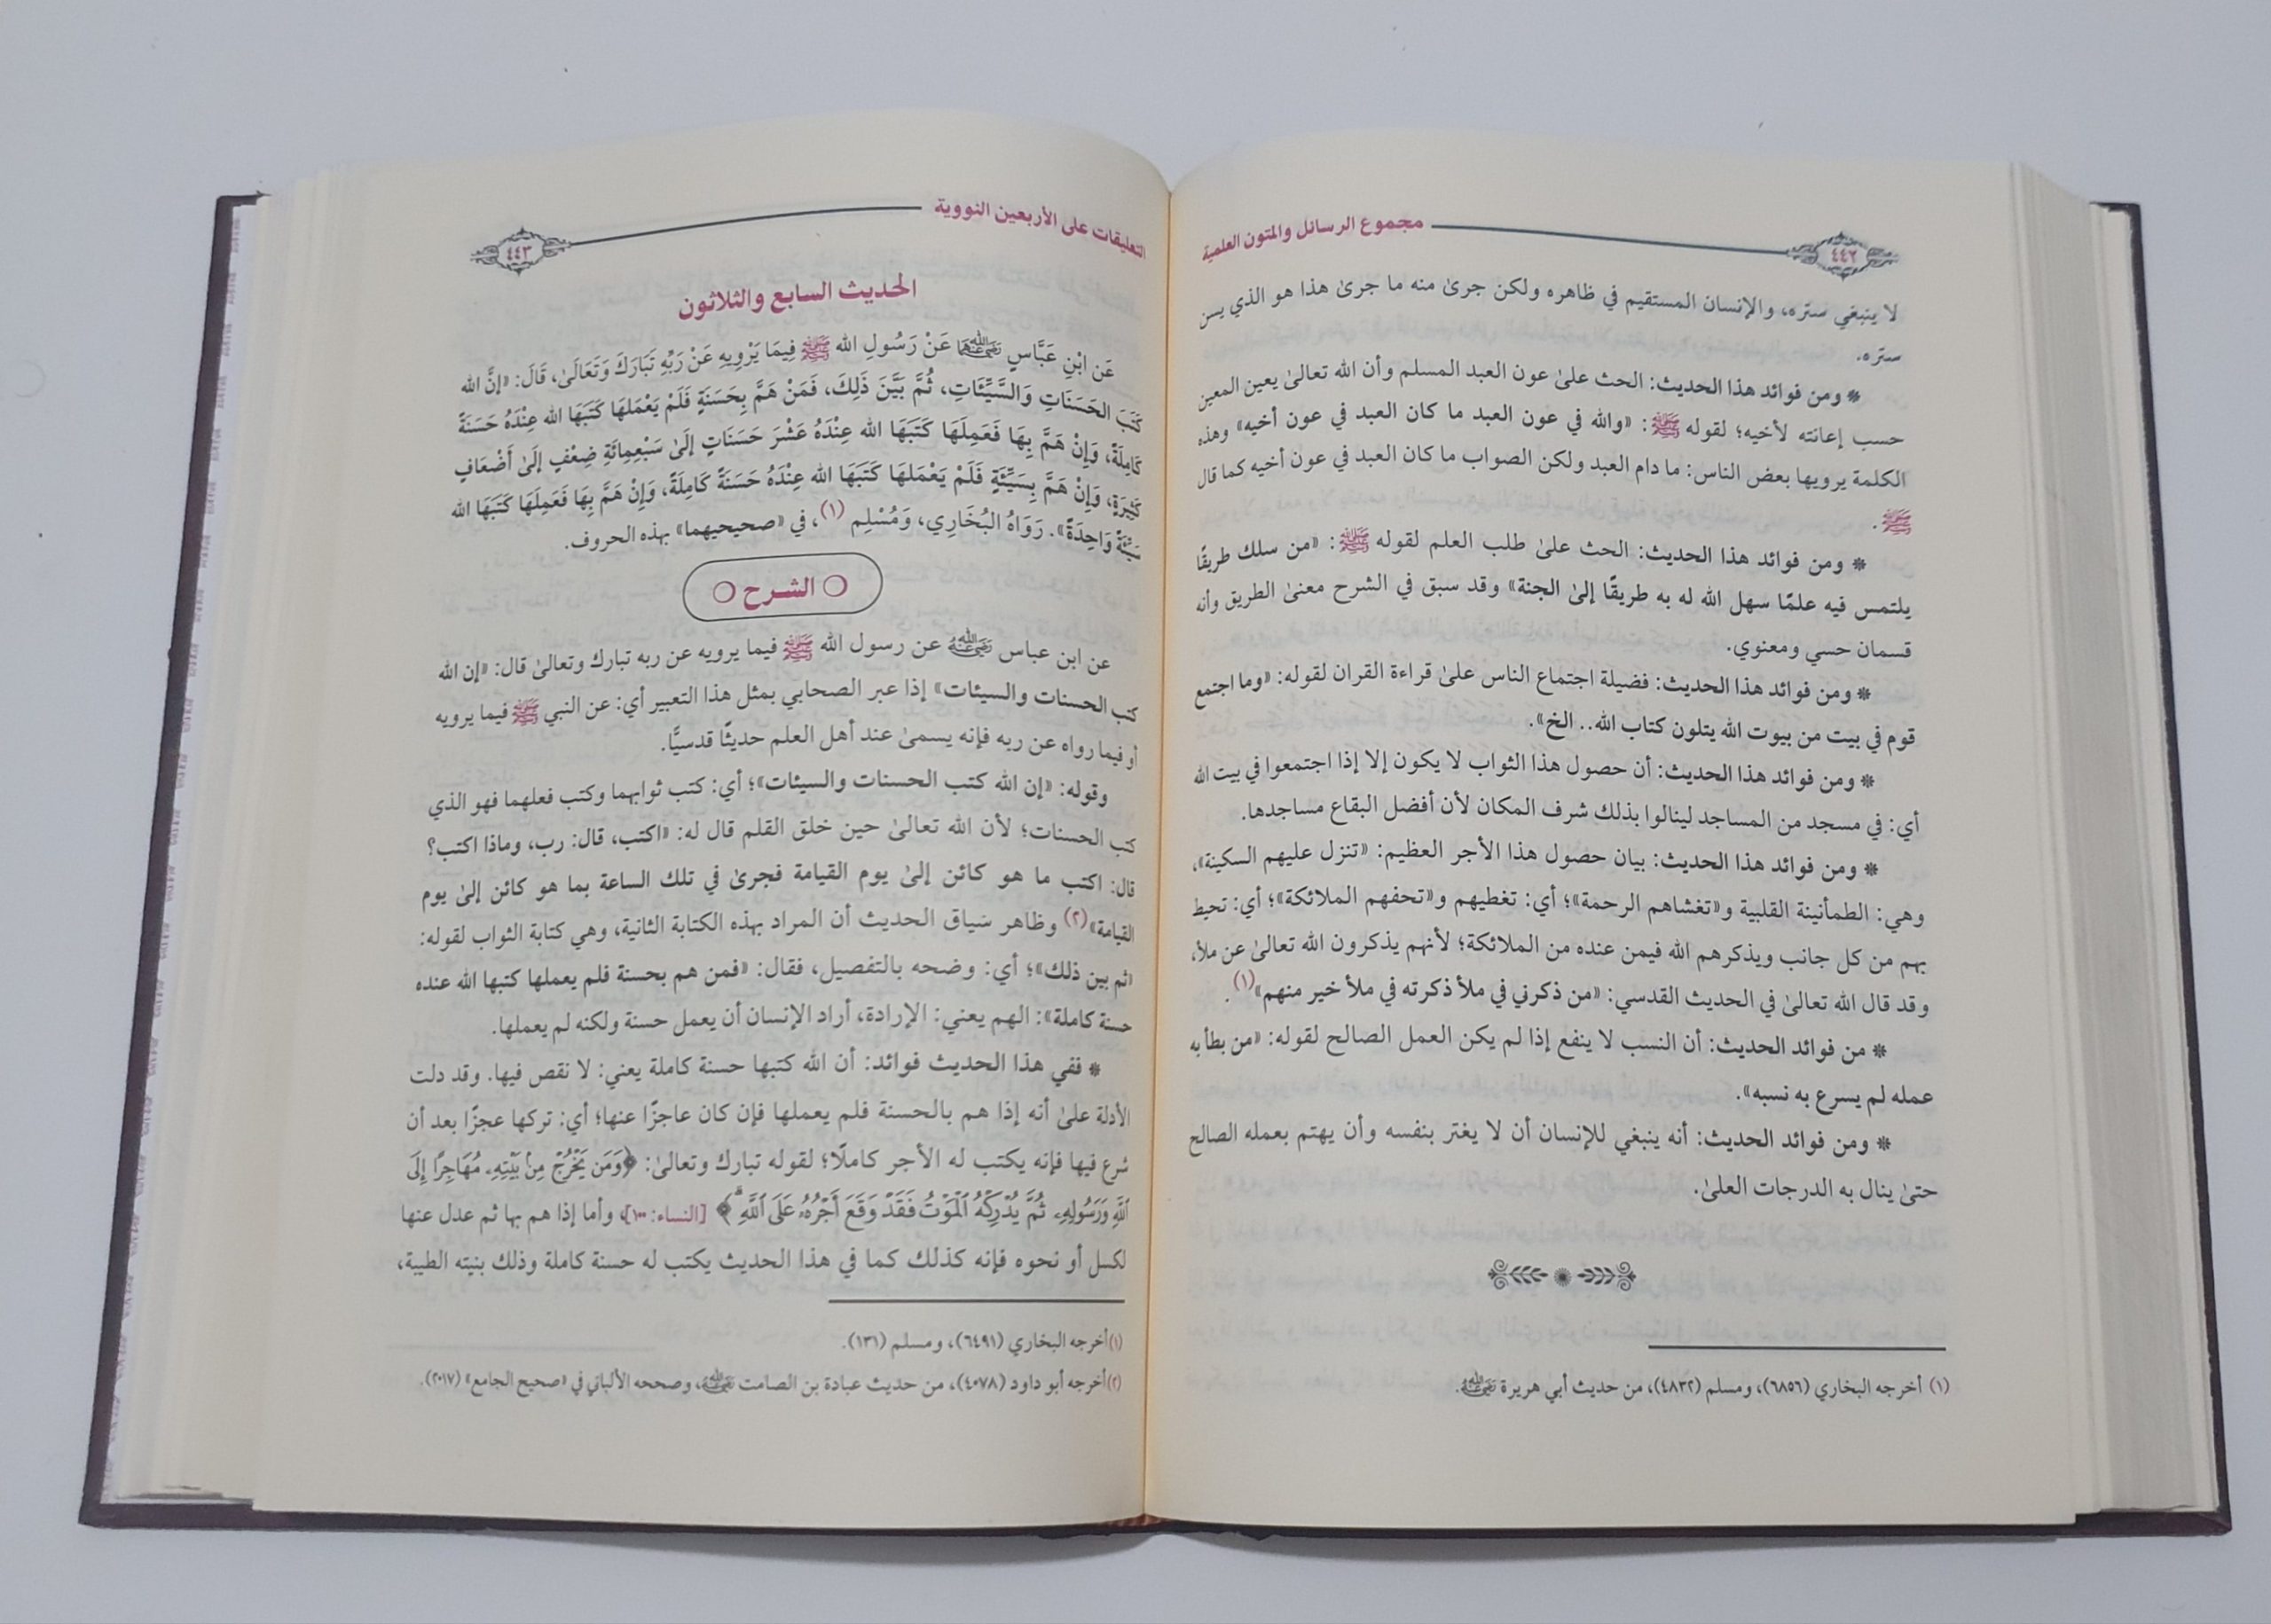 مجموع الرسائل والمتون العلمية
٤٤٢
لا ينبغي ستره، والإنسان المستقيم في ظاهره ولكن جرىٰ منه ما جرىٰ هذا هو الذي يسن
ستره.
* ومن فوائد هذا الحديث: الحث علىٰ عون العبد المسلم وأن الله تعالىٰ يعين المعين
حسب إعانته لأخيه؛ لقوله ﷺ: «والله في عون العبد ما كان العبد في عون أخيه» وهذه
الكلمة يرويها بعض الناس: ما دام العبد ولكن الصواب ما كان العبد في عون أخيه كما قال
ﷺ.
* ومن فوائد هذا الحديث: الحث علىٰ طلب العلم لقوله ﷺ: «من سلك طريقًا
يلتمس فيه علمًا سهل الله له به طريقًا إلىٰ الجنة» وقد سبق في الشرح معنىٰ الطريق وأنه
قسمان حسي ومعنوي.
* ومن فوائد هذا الحديث: فضيلة اجتماع الناس علىٰ قراءة القران لقوله: «وما اجتمع
قوم في بيت من بيوت الله يتلون كتاب الله.. الخ».
* ومن فوائد هذا الحديث: أن حصول هذا الثواب لا يكون إلا إذا اجتمعوا في بيت الله
أي: في مسجد من المساجد لينالوا بذلك شرف المكان لأن أفضل البقاع مساجدها.
* ومن فوائد هذا الحديث: بيان حصول هذا الأجر العظيم: «تنزل عليهم السكينة»،
وهي: الطمأنينة القلبية و«تغشاهم الرحمة»؛ أي: تغطيهم و«تحفهم الملائكة»؛ أي: تحيط
بهم من كل جانب ويذكرهم الله فيمن عنده من الملائكة؛ لأنهم يذكرون الله تعالىٰ عن ملأ،
وقد قال الله تعالىٰ في الحديث القدسي: «من ذكرني في ملأ ذكرته في ملأ خير منهم»(١).
* من فوائد هذا الحديث: أن النسب لا ينفع إذا لم يكن العمل الصالح لقوله: «من بطأ به
عمله لم يسرع به نسبه».
* ومن فوائد الحديث: أنه ينبغي للإنسان أن لا يغتر بنفسه وأن يهتم بعمله الصالح
حتىٰ ينال به الدرجات العلىٰ.
(١) أخرجه البخاري (٦٨٥٦)، ومسلم (٤٨٣٢)، من حديث أبي هريرة رضي الله عنه.
التعليقات على الأربعين النووية
٤٤٣
الحديث السابع والثلاثون
عَن ابْنِ عَبَّاسٍ رضي الله عنهما عَنْ رَسُولِ الله ﷺ فِيمَا يَرْوِيهِ عَنْ رَبِّهِ تَبَارَكَ وَتَعَالَىٰ، قَالَ: «إنَّ الله
كَتَبَ الحَسَنَاتِ وَالسَّيِّئَاتِ، ثُمَّ بَيَّنَ ذَلِكَ، فَمَنْ هَمَّ بِحَسَنَةٍ فَلَمْ يَعْمَلهَا كَتَبَهَا الله عِنْدَهُ حَسَنَةً
كَامِلَةً، وَإِنْ هَمَّ بِهَا فَعَمِلَهَا كَتَبَهَا الله عِنْدَهُ عَشْرَ حَسَنَاتٍ إِلَىٰ سَبْعِمِائَةِ ضِعْفٍ إِلَىٰ أَضْعَافٍ
كَثِيرَةٍ، وَإِنْ هَمَّ بِسَيِّئَةٍ فَلَمْ يَعْمَلهَا كَتَبَهَا الله عِنْدَهُ حَسَنَةً كَامِلَةً، وَإِنْ هَمَّ بِهَا فَعَمِلَهَا كَتَبَهَا الله
سَيِّئَةً وَاحِدَةً». رَوَاهُ البُخَارِي، وَمُسْلِم (١)، في «صحيحيهما» بهذه الحروف.
الشرح
عن ابن عباس رضي الله عنه عن رسول الله ﷺ فيما يرويه عن ربه تبارك وتعالىٰ قال: «إن الله
كتب الحسنات والسيئات» إذا عبر الصحابي بمثل هذا التعبير أي: عن النبي ﷺ فيما يرويه
أو فيما رواه عن ربه فإنه يسمىٰ عند أهل العلم حديثًا قدسيًّا.
وقوله: «إن الله كتب الحسنات والسيئات»؛ أي: كتب ثوابهما وكتب فعلهما فهو الذي
كتب الحسنات؛ لأن الله تعالىٰ حين خلق القلم قال له: «اكتب، قال: رب، وماذا اكتب؟
قال: اكتب ما هو كائن إلىٰ يوم القيامة فجرىٰ في تلك الساعة بما هو كائن إلىٰ يوم
القيامة»(٢) وظاهر سياق الحديث أن المراد بهذه الكتابة الثانية، وهي كتابة الثواب لقوله:
«ثم بين ذلك»؛ أي: وضحه بالتفصيل، فقال: «فمن هم بحسنة فلم يعملها كتبها الله عنده
حسنة كاملة»: الهم يعني: الإرادة، أراد الإنسان أن يعمل حسنة ولكنه لم يعملها.
* ففي هذا الحديث فوائد: أن الله كتبها حسنة كاملة يعني: لا نقص فيها. وقد دلت
الأدلة علىٰ أنه إذا هم بالحسنة فلم يعملها فإن كان عاجزًا عنها؛ أي: تركها عجزًا بعد أن
شرع فيها فإنه يكتب له الأجر كاملًا؛ لقوله تبارك وتعالىٰ: ﴿وَمَن يَخْرُجْ مِنۢ بَيْتِهِۦ مُهَاجِرًا إِلَى
ٱللَّهِ وَرَسُولِهِۦ ثُمَّ يُدْرِكْهُ ٱلْمَوْتُ فَقَدْ وَقَعَ أَجْرُهُۥ عَلَى ٱللَّهِ ۗ﴾ [النساء: ١٠٠]، وأما إذا هم بها ثم عدل عنها
لكسل أو نحوه فإنه كذلك كما في هذا الحديث يكتب له حسنة كاملة وذلك بنيته الطيبة،
(١) أخرجه البخاري (٦٤٩١)، ومسلم (١٣١).
(٢) أخرجه أبو داود (٤٠٧٨)، من حديث عبادة بن الصامت رضي الله عنه، وصححه الألباني في «صحيح الجامع» (٢٠١٧).